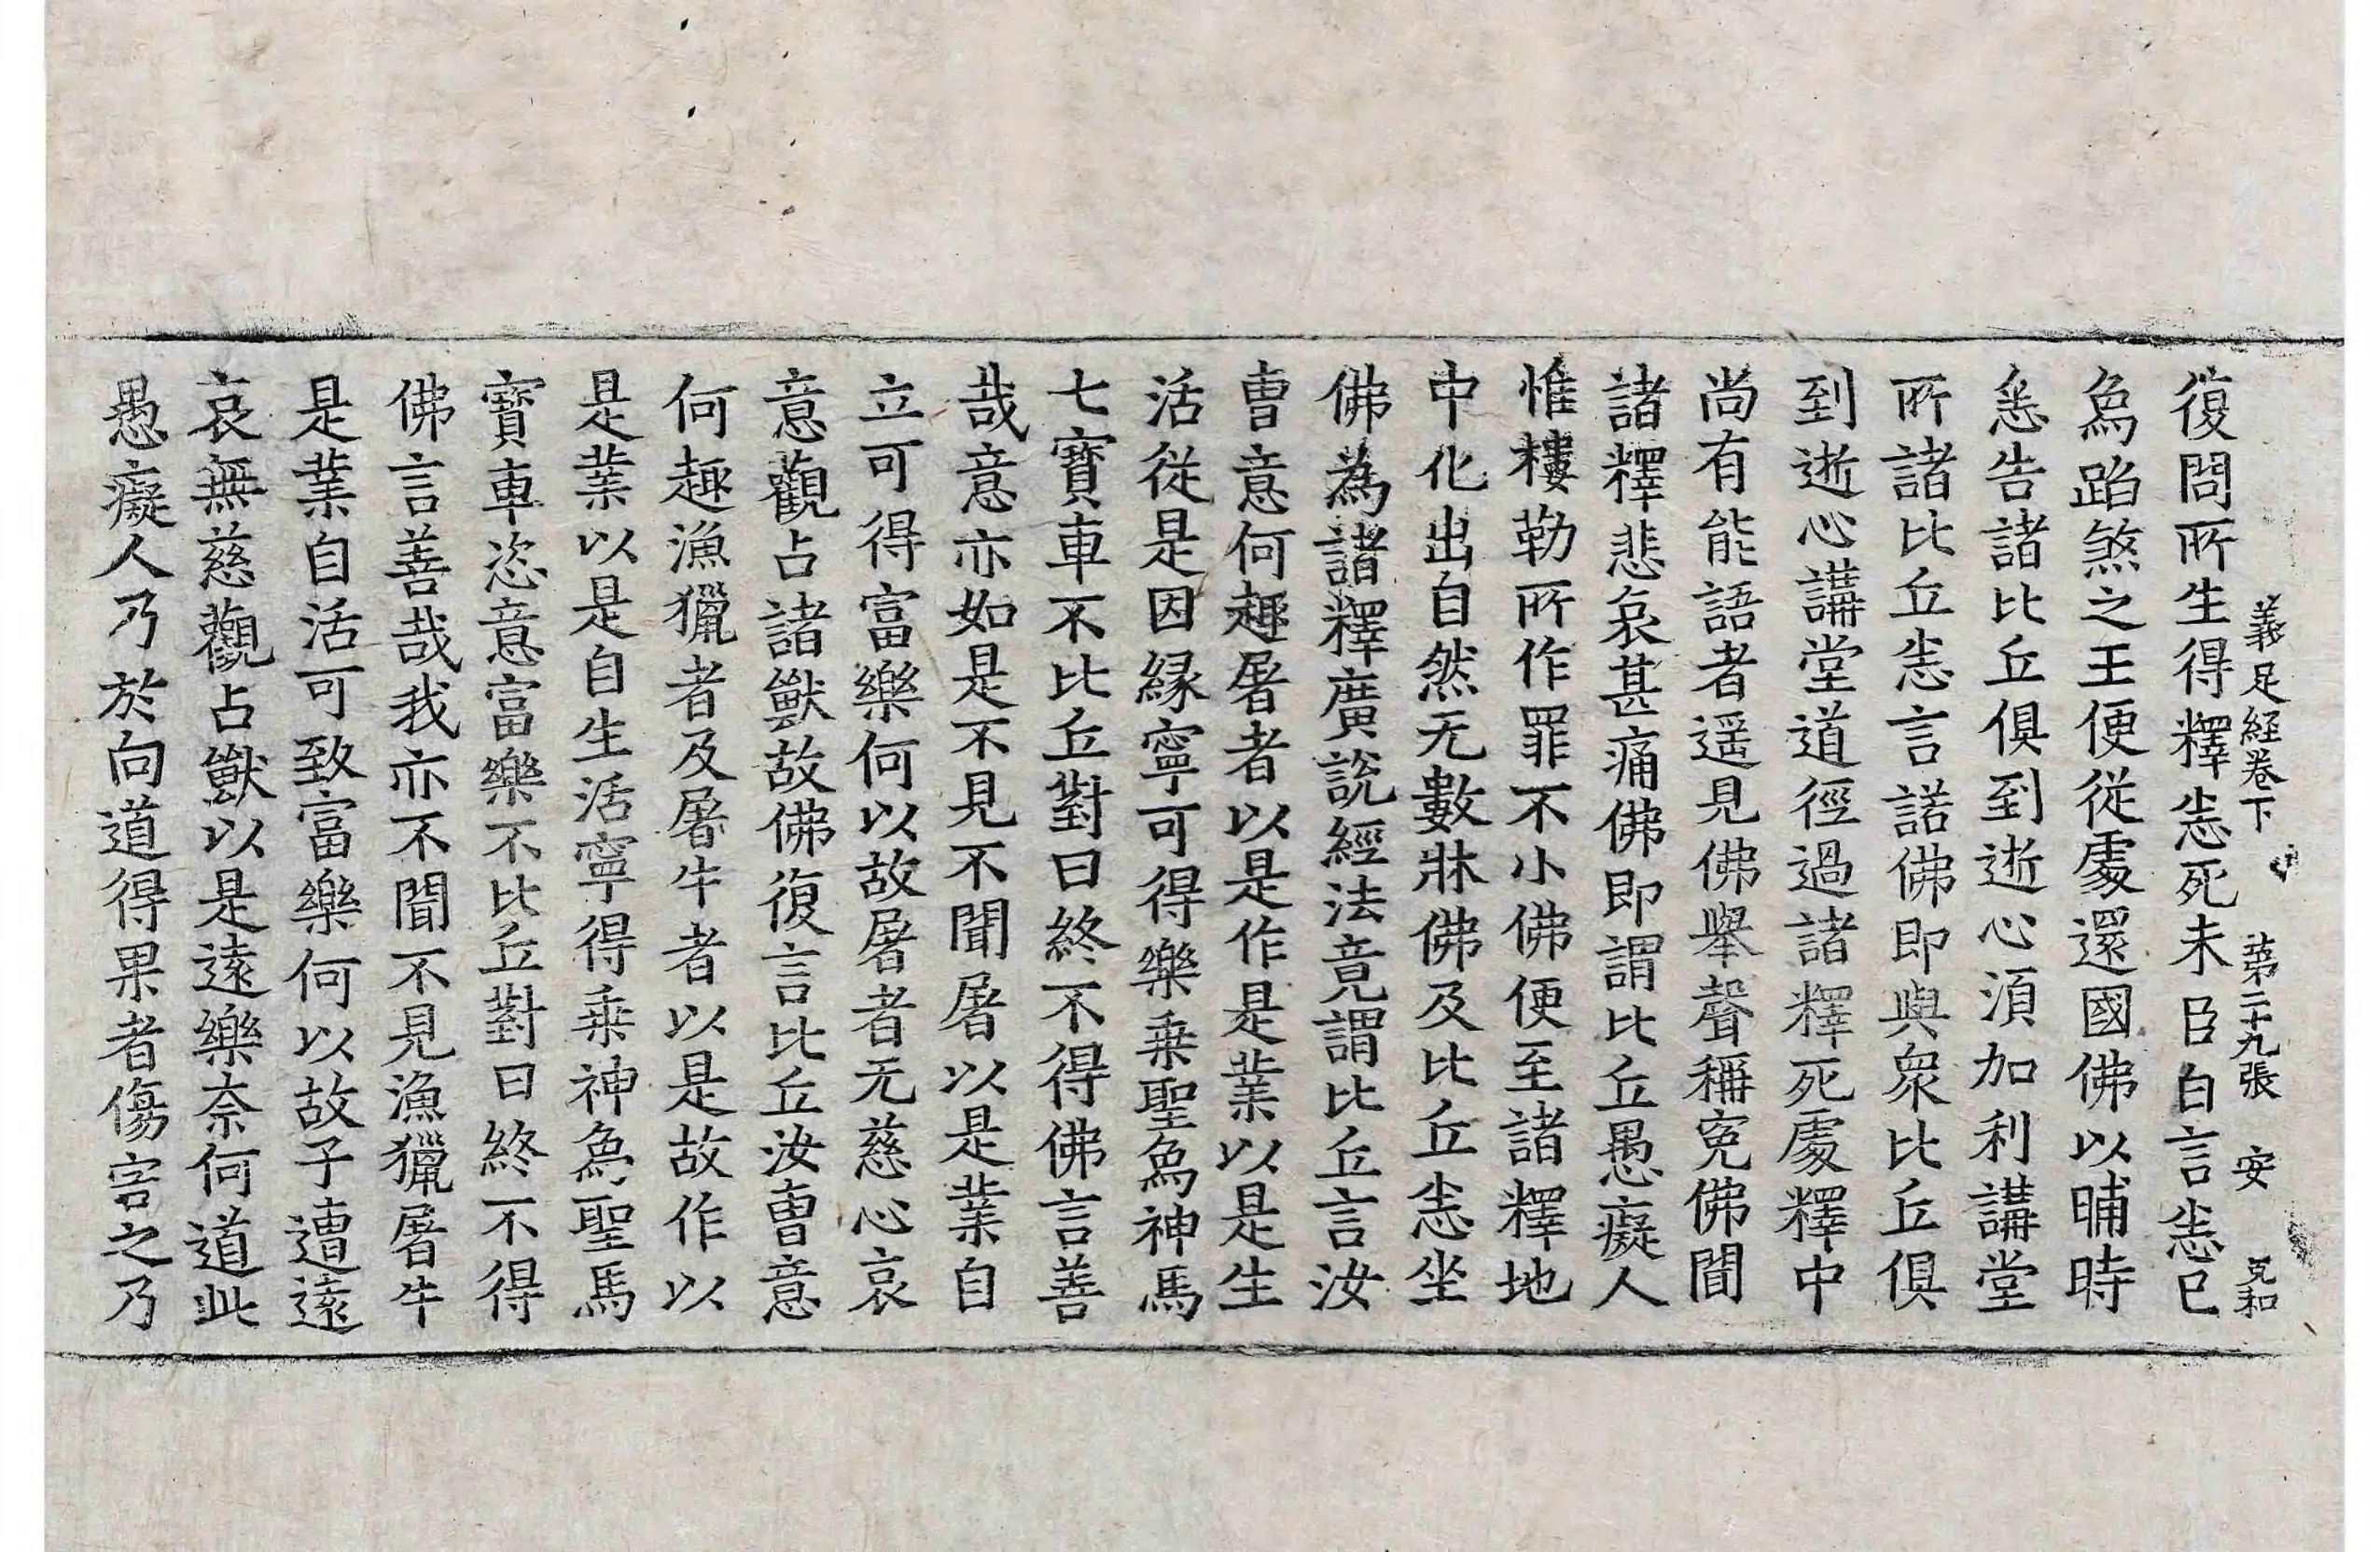 義足經卷下 第二十九張 安 克和
復問所生得釋恙死未臣白言恙已
爲蹈煞之王便從處還國佛以晡時
恙告諸比丘俱到逝心須加利講堂
所諸比丘恙言諾佛即與衆比丘俱
到逝心講堂道徑過諸釋死處釋中
尚有能語者遥見佛舉聲稱寃佛聞
諸釋悲哀甚痛佛即謂比丘愚癡人
惟樓勒所作罪不小佛便至諸釋地
中化出自然无數牀佛及比丘恙坐
佛為諸釋廣說經法竟謂比丘言汝
曺意何趣屠者以是作是業以是生
活從是因緣寧可得樂乗聖爲神馬
七寶車不比丘對曰終不得佛言善
哉意亦如是不見不聞屠以是業自
立可得富樂何以故屠者无慈心哀
意觀占諸獸故佛復言比丘汝曺意
何趣漁獵者及屠牛者以是故作以
是業以是自生活寧得乗神爲聖馬
寶車恣意富樂不比丘對曰終不得
佛言善哉我亦不聞不見漁獵屠牛
是業自活可致富樂何以故子遭遠
哀無慈觀占獸以是遠樂奈何道此
愚癡人乃於向道得果者傷害之乃